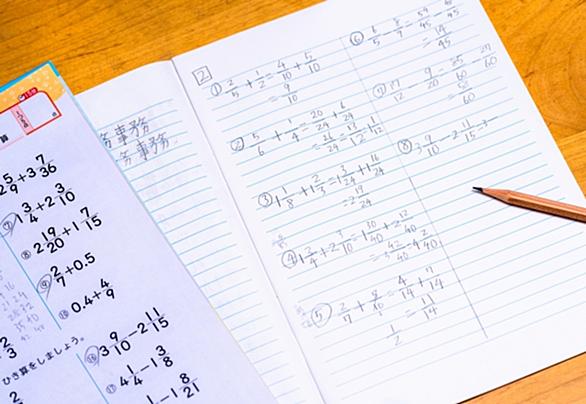 2 5/9+3 7/36
⑦ 1 3/4+2 3/10
⑧ 2 19/20+1 7/15
⑨ 2/7+0.5
⑩ 0.4+4/9
ひき算をしましょう。
⑯ 3 9/10-2 11/15
⑰ 4 1/4-1 3/8
1/2-1 8/21
務事務
務事務
2
① 2/5+1/2=4/10+5/10
=9/10
② 5/6+1/4=20/24+6/24
=26/24=13/12=1 1/12
③ 1 1/8+1 2/3=1 3/24+1 16/24
=2 19/24
④ 1 3/4+2 3/10=1 30/40+2 12/40
=3 42/40=4 2/40
⑤ 2/7+8/10=4/14+7/14
=11/14
1/2
⑥ 6/5-8/9=54/45-40/45
=14/45
⑦ 17/12-9/20=85/60-27/60
=58/60
⑧ 3 9/10-2 11/15=3